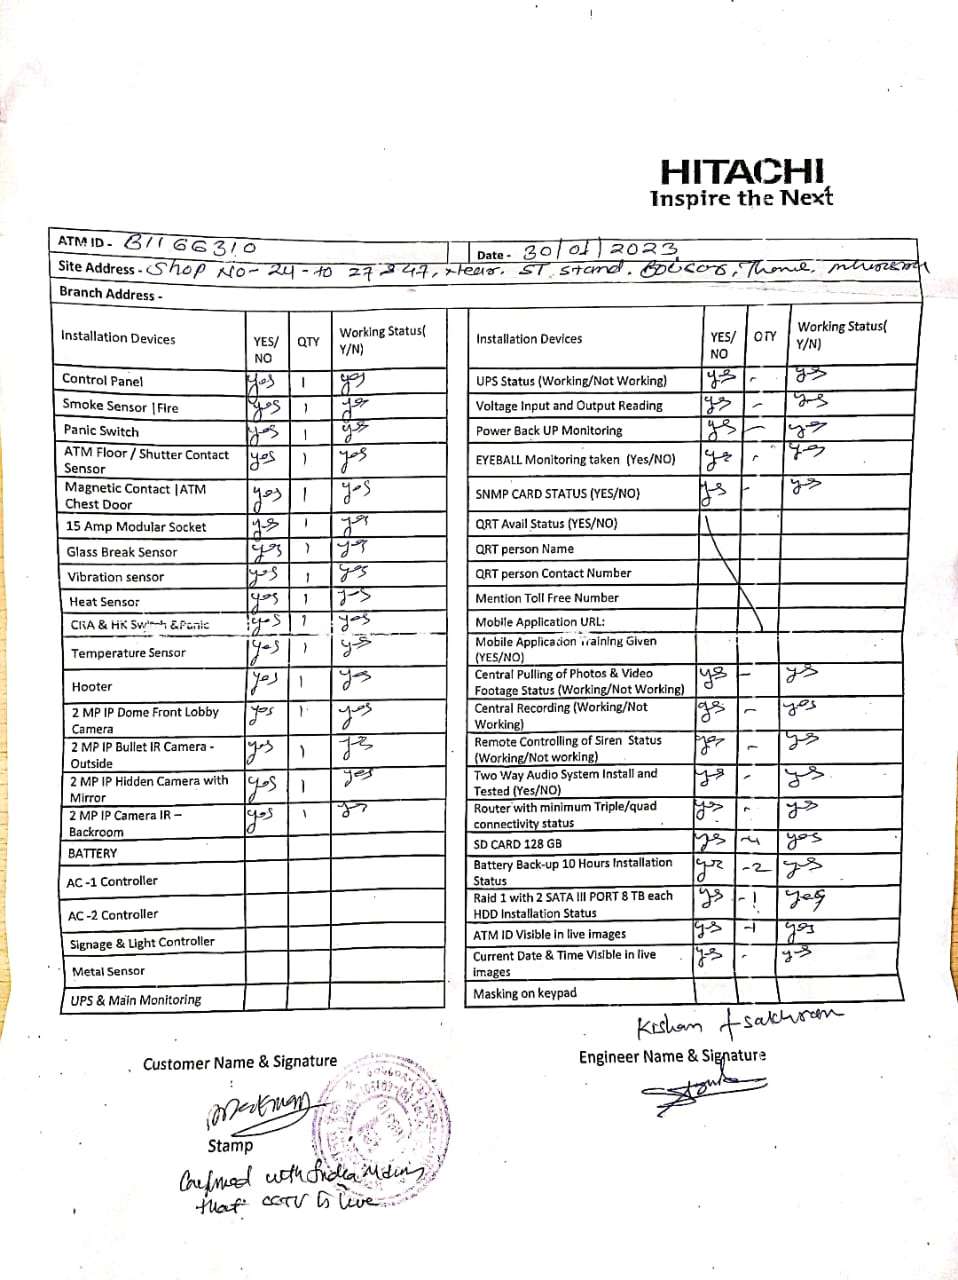 HITACHI
Inspire the Next
ATM ID - B1166310 Date - 30/01/2023
Site Address - Shop No - 24 - to 27 & 47, Near. ST stand.
Branch Address -
Installation Devices YES/NO QTY Working Status(Y/N)
Control Panel yes 1 yes
Smoke Sensor |Fire yes 1 yes
Panic Switch yes 1 yes
ATM Floor / Shutter Contact Sensor yes 1 yes
Magnetic Contact |ATM Chest Door yes 1 yes
15 Amp Modular Socket yes 1 yes
Glass Break Sensor yes 1 yes
Vibration sensor yes 1 yes
Heat Sensor yes 1 yes
CRA & HK Switch &Panic yes 1 yes
Temperature Sensor yes 1 yes
Hooter yes 1 yes
2 MP IP Dome Front Lobby Camera yes 1 yes
2 MP IP Bullet IR Camera - Outside yes 1 yes
2 MP IP Hidden Camera with Mirror yes 1 yes
2 MP IP Camera IR – Backroom yes 1 yes
BATTERY
AC -1 Controller
AC -2 Controller
Signage & Light Controller
Metal Sensor
UPS & Main Monitoring
Installation Devices YES/NO QTY Working Status(Y/N)
UPS Status (Working/Not Working) yes - yes
Voltage Input and Output Reading yes - yes
Power Back UP Monitoring yes - yes
EYEBALL Monitoring taken (Yes/NO) yes - yes
SNMP CARD STATUS (YES/NO) yes - yes
QRT Avail Status (YES/NO)
QRT person Name
QRT person Contact Number
Mention Toll Free Number
Mobile Application URL:
Mobile Application Training Given (YES/NO)
Central Pulling of Photos & Video Footage Status (Working/Not Working) yes - yes
Central Recording (Working/Not Working) yes - yes
Remote Controlling of Siren Status (Working/Not working) yes - yes
Two Way Audio System Install and Tested (Yes/NO) yes - yes
Router with minimum Triple/quad connectivity status yes - yes
SD CARD 128 GB yes -4 yes
Battery Back-up 10 Hours Installation Status yes -2 yes
Raid 1 with 2 SATA III PORT 8 TB each HDD Installation Status yes -1 yes
ATM ID Visible in live images yes -1 yes
Current Date & Time Visible in live images yes - yes
Masking on keypad
Kishan
Customer Name & Signature Engineer Name & Signature
Stamp
with
that CCTV is live